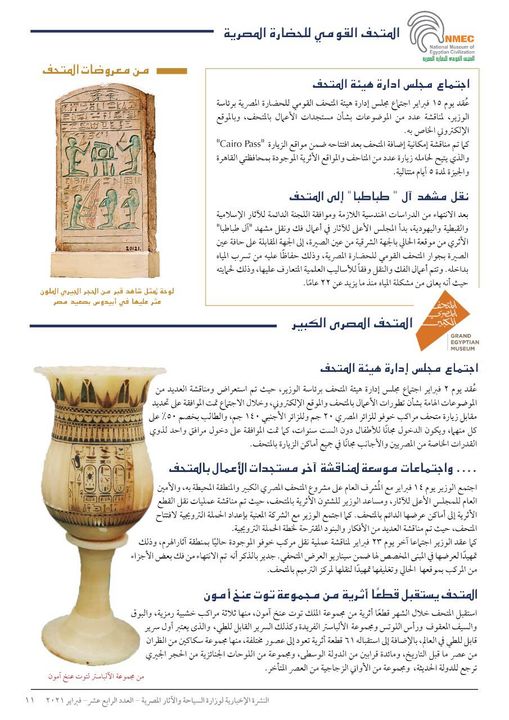 المتحف القومي للحضارة المصرية
NMEC
National Museum of
Egyptian Civilization
المتحف القومي للحضارة المصرية
من معروضات المتحف
لوحة تمثل شاهد قبر من الحجر الجيري الملون
عثر عليها في أبيدوس بصعيد مصر
اجتماع مجلس ادارة هيئة المتحف
عُقد يوم ١٥ فبراير اجتماع مجلس إدارة هيئة المتحف القومي للحضارة المصرية برئاسة
الوزير، لمناقشة عدد من الموضوعات بشأن مستجدات الأعمال بالمتحف، وبالموقع
الإلكتروني الخاص به.
كما تم مناقشة إمكانية إضافة المتحف بعد افتتاحه ضمن مواقع الزيارة "Cairo Pass"
والذي يتيح لحامله زيارة عدد من المتاحف والمواقع الأثرية الموجودة بمحافظتي القاهرة
والجيزة لمدة ٥ أيام متتالية.
نقل مشهد آل " طباطبا" إلى المتحف
بعد الانتهاء من الدراسات الهندسية اللازمة وموافقة اللجنة الدائمة للآثار الإسلامية
والقبطية واليهودية، بدأ المجلس الأعلى للآثار في أعمال فك ونقل مشهد "آل طباطبا"
الأثري من موقعة الحالي بالجهة الشرقية من عين الصيرة، إلى الجهة المقابلة على حافة عين
الصيرة بجوار المتحف القومي للحضارة المصرية، وذلك حفاظًا عليه من تسرب المياه
بداخله. وتتم أعمال الفك والنقل وفقاً للأساليب العلمية المتعارف عليها، وذلك لحمايته
حيث أنه يعانى من مشكلة المياه منذ ما يزيد عن ٢٢ عامًا.
المتحف المصرى الكبير
المتحف
المصري
الكبير
GRAND
EGYPTIAN
MUSEUM
اجتماع مجلس إدارة هيئة المتحف
عُقد يوم ٢ فبراير اجتماع مجلس إدارة هيئة المتحف برئاسة الوزير، حيث تم استعراض ومناقشة العديد من
الموضوعات الهامة بشأن تطورات الأعمال بالمتحف والموقع الإلكتروني، وخلال الاجتماع تمت الموافقة على تحديد
مقابل زيارة متحف مراكب خوفو للزائر المصري ٢٠ جم وللزائر الأجنبي ١٤٠ جم، والطالب بخصم ٥٠٪ على
كل منهما، ويكون الدخول مجانًا للأطفال دون الست سنوات، كما تمت الموافقة على دخول مرافق واحد لذوي
القدرات الخاصة من المصريين والأجانب مجانًا في جميع أماكن الزيارة بالمتحف.
.... واجتماعات موسعة لمناقشة آخر مستجدات الأعمال بالمتحف
اجتمع الوزير يوم ١٤ فبراير مع المُشرف العام على مشروع المتحف المصري الكبير والمنطقة المحيطة به، والأمين
العام للمجلس الأعلى للآثار، ومساعد الوزير للشئون الأثرية بالمتحف، حيث تم مناقشة عمليات نقل القطع
الأثرية إلى أماكن عرضها الدائم بالمتحف. كما اجتمع الوزير مع الشركة المعنية بإعداد الحملة الترويجية لافتتاح
المتحف، حيث تم مناقشة العديد من الأفكار والبنود المقترحة لخطة الحملة الترويجية.
كما عقد الوزير اجتماعا آخر يوم ٢٣ فبراير لمناقشة عملية نقل مركب خوفو الموجودة حاليًا بمنطقة آثار الهرم، وذلك
تمهيدًا لعرضها في المبنى المخصص لها ضمن سيناريو العرض المتحفي. جدير بالذكر أنه تم الانتهاء من فك بعض الأجزاء
من المركب بموقعها الحالي وتغليفها تمهيدًا لنقلها لمركز الترميم بالمتحف.
المتحف يستقبل قطعًا أثرية من مجموعة توت عنخ آمون
استقبل المتحف خلال الشهر قطعًا أثرية من مجموعة الملك توت عنخ آمون، منها ثلاثة مراكب خشبية رمزية، والبوق
والسيف المعقوف ورأس اللوتس ومجموعة الألباستر الفريدة وكذلك السرير القابل للطي، والذي يعتبر أول سرير
قابل للطي في العالم، بالإضافة إلى استقباله ٦١ قطعة أثرية تعود إلى عصور مختلفة، منها مجموعة سكاكين من الظران
من عصر ما قبل التاريخ، ومائدة قرابين من الدولة الوسطى، ومجموعة من اللوحات الجنائزية من الحجر الجيري
ترجع للدولة الحديثة، ومجموعة من الأواني الزجاجية من العصر المتأخر.
من مجموعة الألباستر لتوت عنخ آمون
النشرة الإخبارية لوزارة السياحة والآثار المصرية - العدد الرابع عشر- فبراير ٢٠٢١ ١١